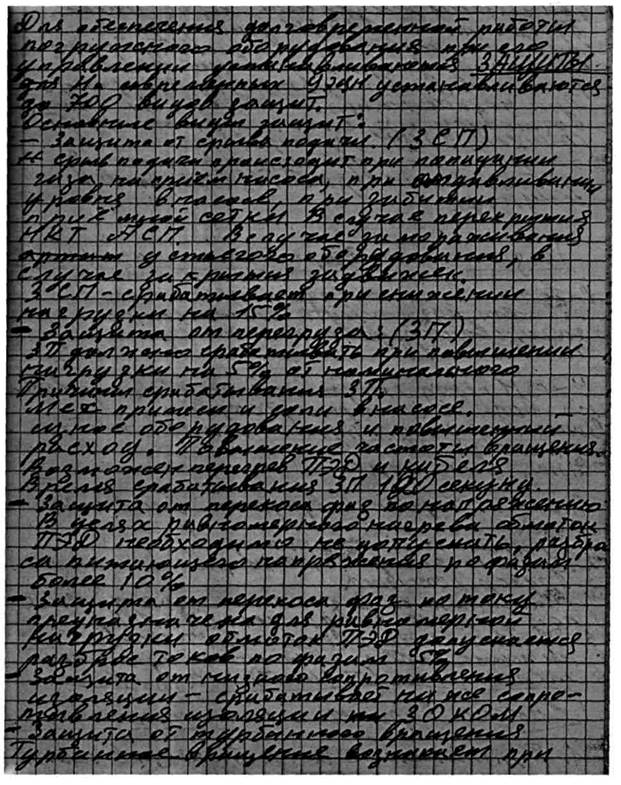 Для обеспечения долговременной работы
погружного оборудования при его
управлении устанавливающий ЗАЩИТЫ
УЭЦН устанавливаются
до 700 видов защит.
Основные виды защит:
– Защита от срыва подачи (ЗСП)
срыв подачи происходит при попадании
газа на приём насоса, при
уровня в насосе, при забитии
сетки В случае перекрытия
НКТ АСП. В случае замораживания
устьевого оборудования, в
случае закрытия задвижек.
ЗСП – срабатывает при снижении
нагрузки на 15%
– Защита от перегруза (ЗП)
ЗП должно срабатывать при повышении
нагрузки на 5% от номинального
Причины срабатывания ЗП.
Мех примеси и соли в насосе.
износ оборудования и повышенный
расход. Повышение частоты вращения.
Возможен перегрев ПЭД и кабеля
Время срабатывания ЗП 120 секунд.
– Защита от перекоса фаз по напряжению
В целях равномерного нагрева обмоток
ПЭД необходимо не допускать, разбро
са питающего напряжения по фазам
более 10%
– Защита от перекоса фаз по току
предназначена для равномерной
нагрузки обмоток ПЭД допускается
разброс токов по фазам 5%
– Защита от низкого сопротивления
изоляции – срабатывает ниже сопро-
тивления изоляции 30 кОм
– Защита от турбинного вращения
Турбинное вращение возникает при